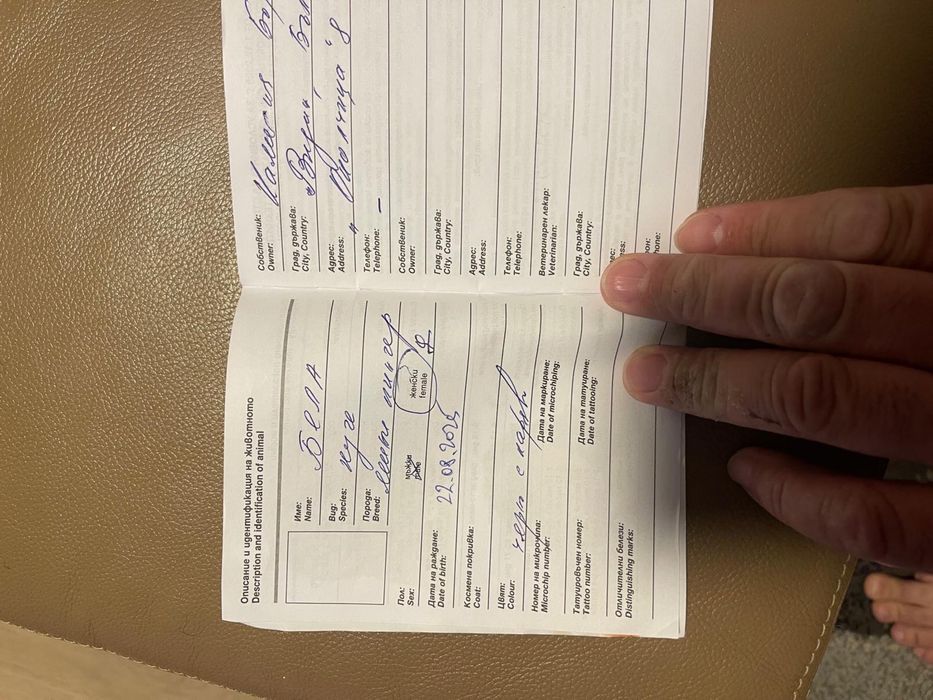 Описание и идентификация на животното
Description and identification of animal
Име: Бела
Name:
Вид: куче
Species:
Порода: мини пинчер
Breed:
Пол: мъжки женски
Sex: male female ♀
Дата на раждане: 22.08.2025
Date of birth:
Космена покривка:
Coat:
Цвят: черн с кафев
Colour:
Номер на микрочипа: Дата на маркиране:
Microchip number: Date of microchiping:
Татуировъчен номер: Дата на татуиране:
Tattoo number: Date of tattooing:
Отличителни белези:
Distinguishing marks:
Собственик:
Owner:
Град, държава: Видин,
City, Country:
Адрес: 8
Address:
Телефон: –
Telephone:
Собственик:
Owner:
Град, държава:
City, Country:
Адрес:
Address:
Телефон:
Telephone:
Ветеринарен лекар:
Veterinarian:
Град, държава:
City, Country: